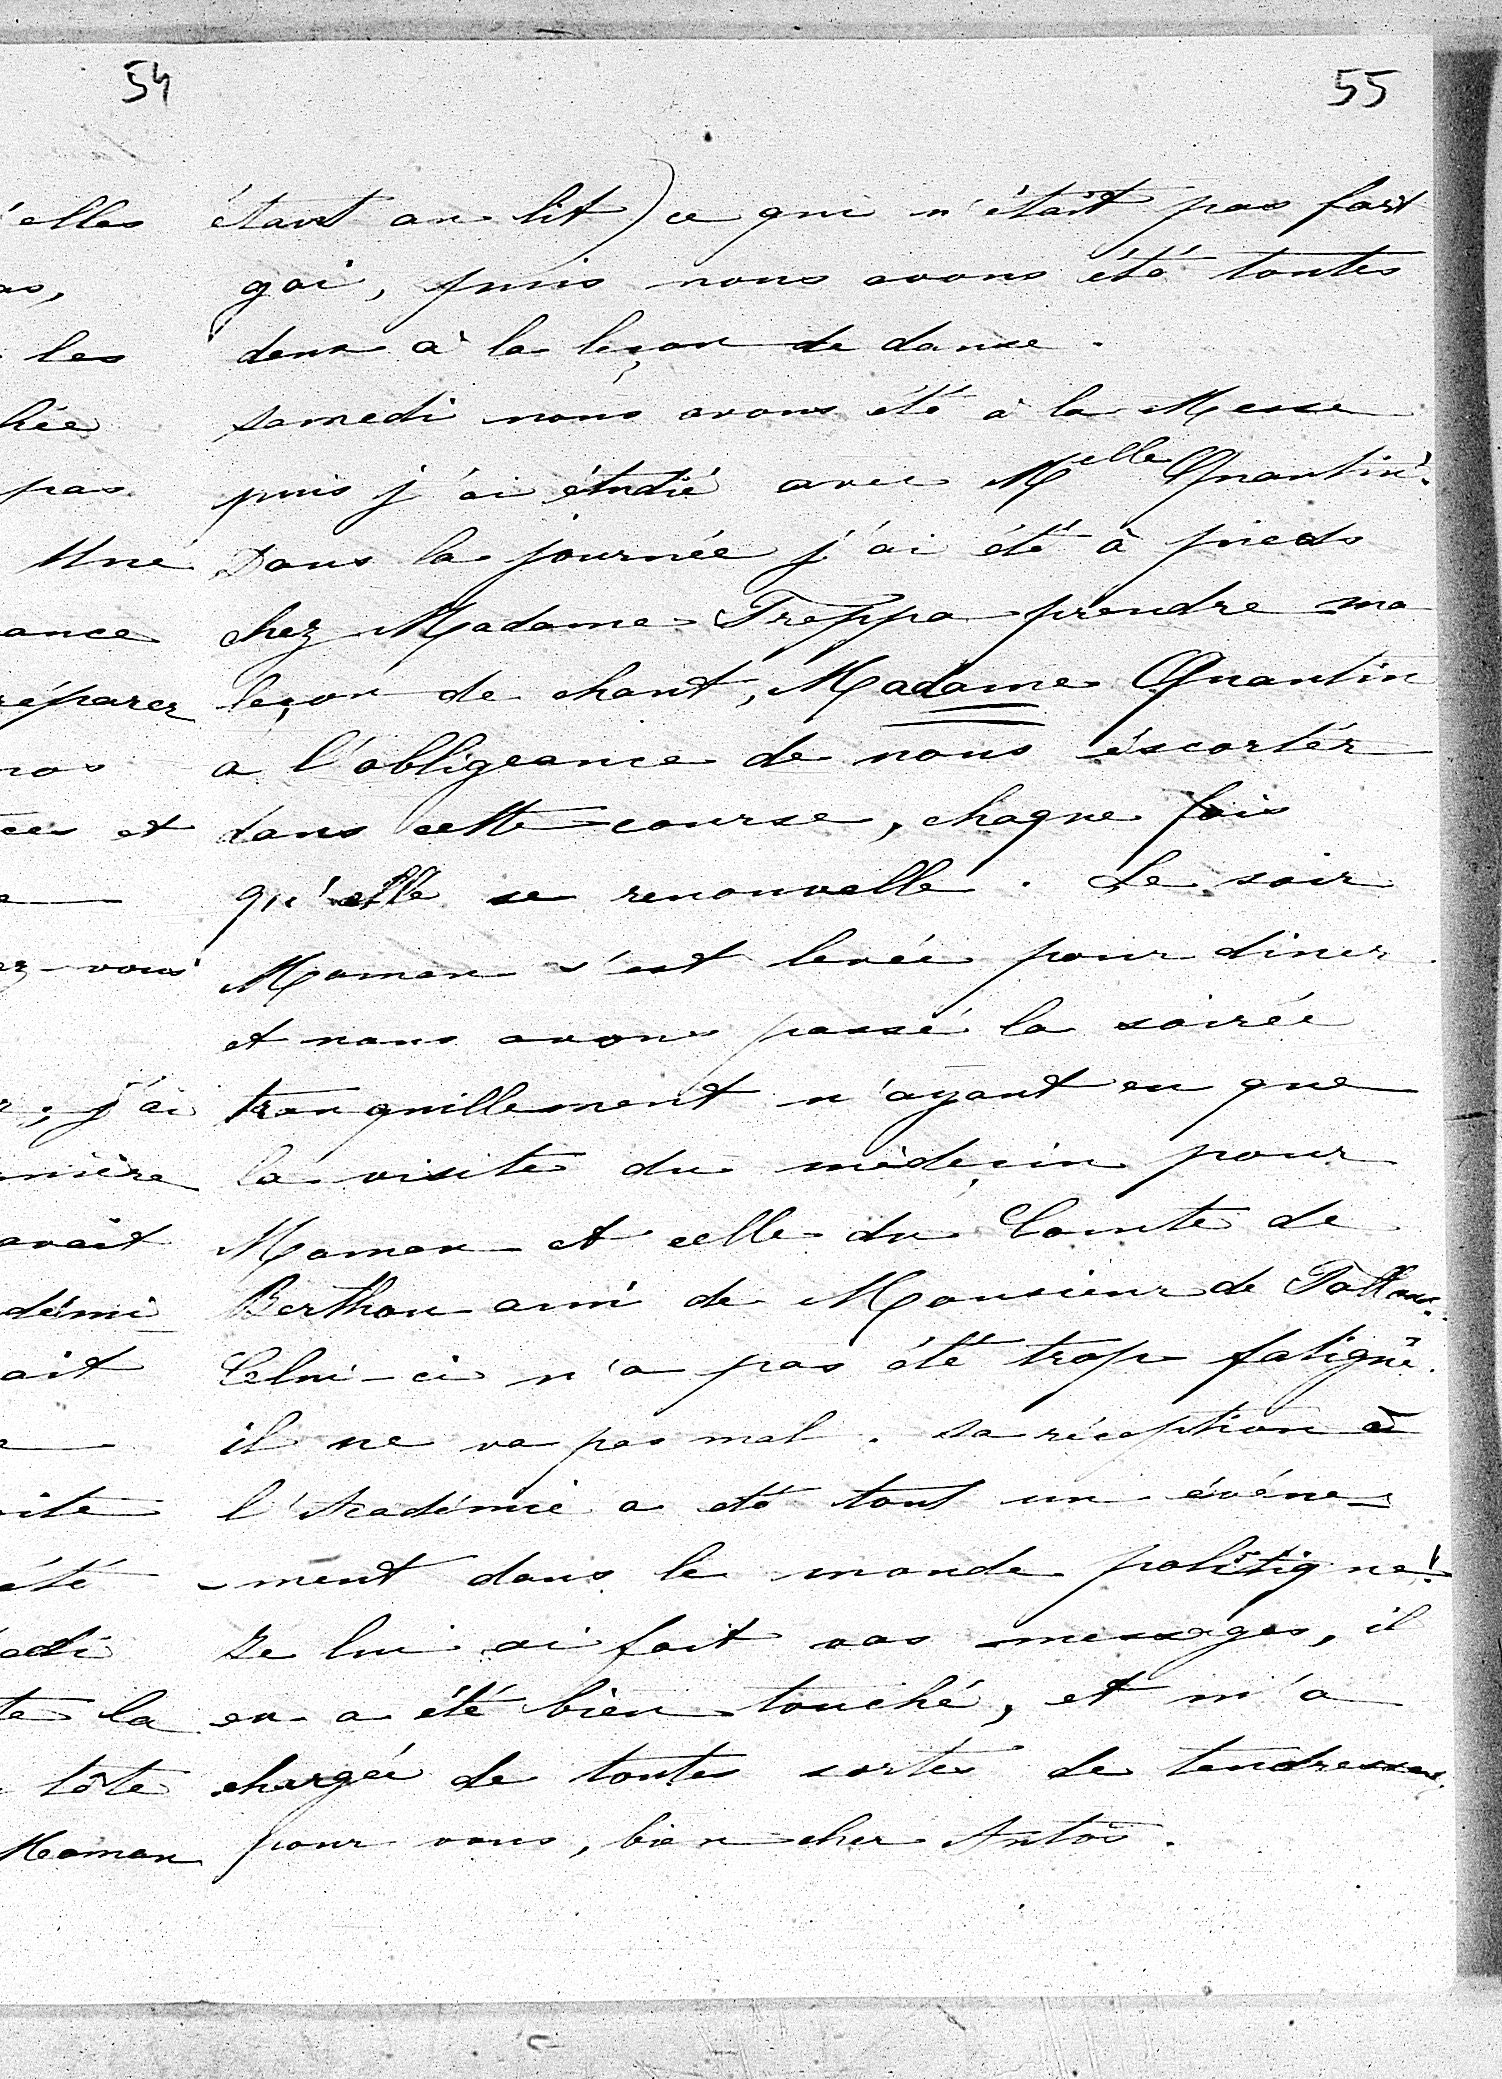 54
55
'elles
les
hée
pas
Une
ance
réparer
nos
ces et
ez-vous
r, j'ai
mière
avait
démi
ait
été
la
tôte
Maman
étant au lit) ce qui n'était pas fort
gai, puis nous avons été toutes
deux à la leçon de danse.
samedi nous avons été à la Messe
puis j'ai étudié avec Melle Quantin.
Dans la journée j'ai été à pieds
chez Madame Treppa prendre ma
leçon de chant, Madame Quantin
a l'obligeance de nous éscorter
dans cette course, chaque fois
qu'elle se renouvelle. Le soir
Maman s'est levée pour diner
et nous avons passé la soirée
tranquillement n'ayant eu que
la visite du médecin pour
Maman et celle du Comte de
Berthou ami de Monsieur de
Celui-ci n'a pas été trop fatigué.
il ne va pas mal. sa réception à
l'Académie a été tout un événe-
-ment dans le monde politique!
Je lui ai fait vos messages, il
en a été bien touché, et m'a
chargée de toutes sortes de tendresses
pour vous, bien cher Antoś.